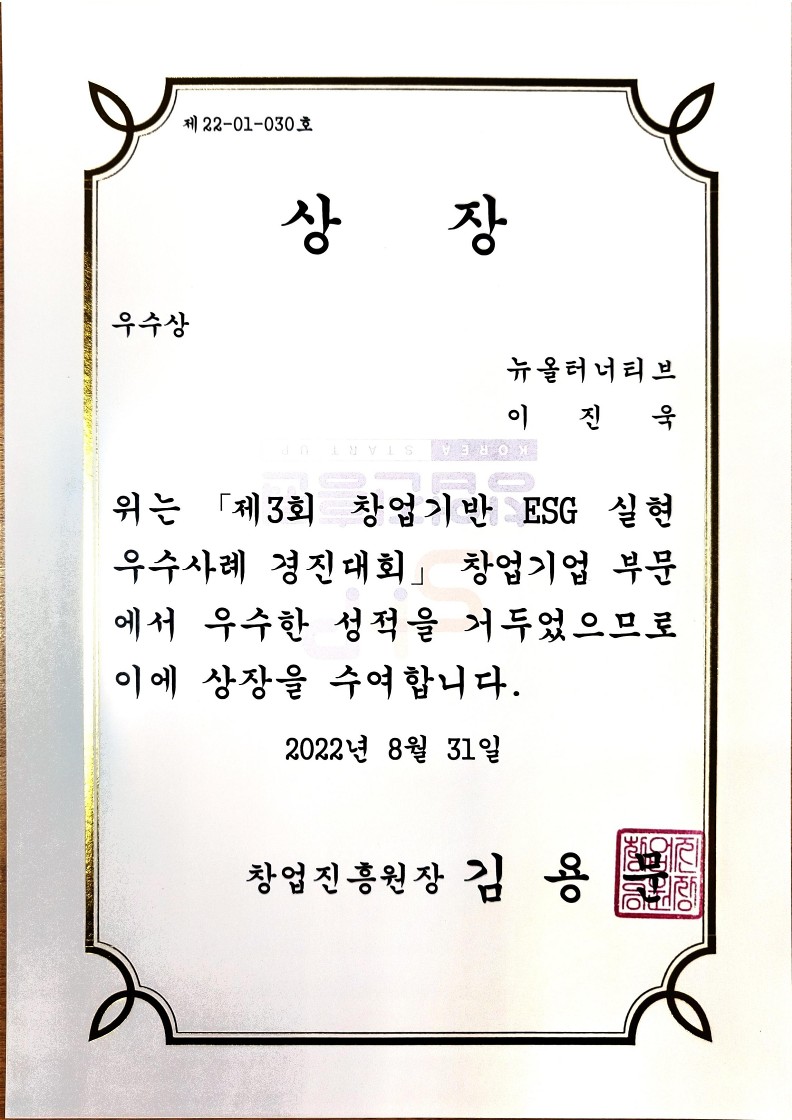 제 22-01-030 호
상 장
우수상
뉴올터너티브
이 진 욱
KOREA START UP
위는 「제3회 창업기반 ESG 실현
우수사례 경진대회」 창업기업 부문
에서 우수한 성적을 거두었으므로
이에 상장을 수여합니다.
2022년 8월 31일
창업진흥원장 김 용 문